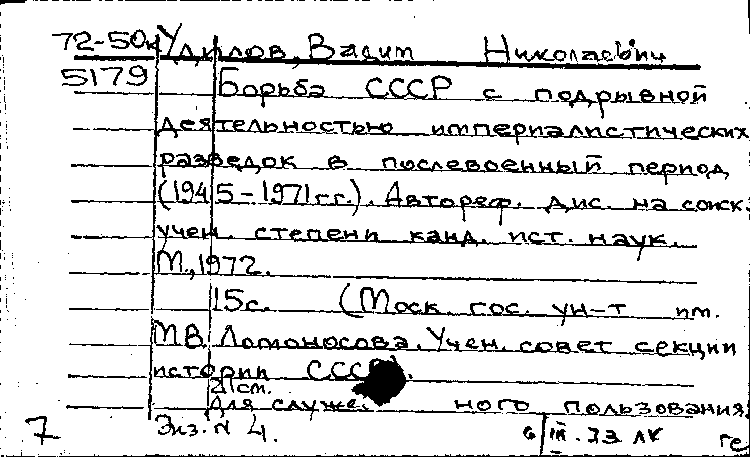 72-50к Удилов, Вадим Николаевич
5179 Борьба СССР с подрывной
деятельностью империалистических
разведок в послевоенный период
(1945-1971гг.). Автореф. дис. на соиск.
учен. степени канд. ист. наук.
М., 1972.
15с. (Моск. гос. ун-т им.
М.В. Ломоносова. Учен. совет секции
истории СССР).
21см.
Для служе. ного пользования.
7 Экз. № 4. 6/III.73 ЛК ге